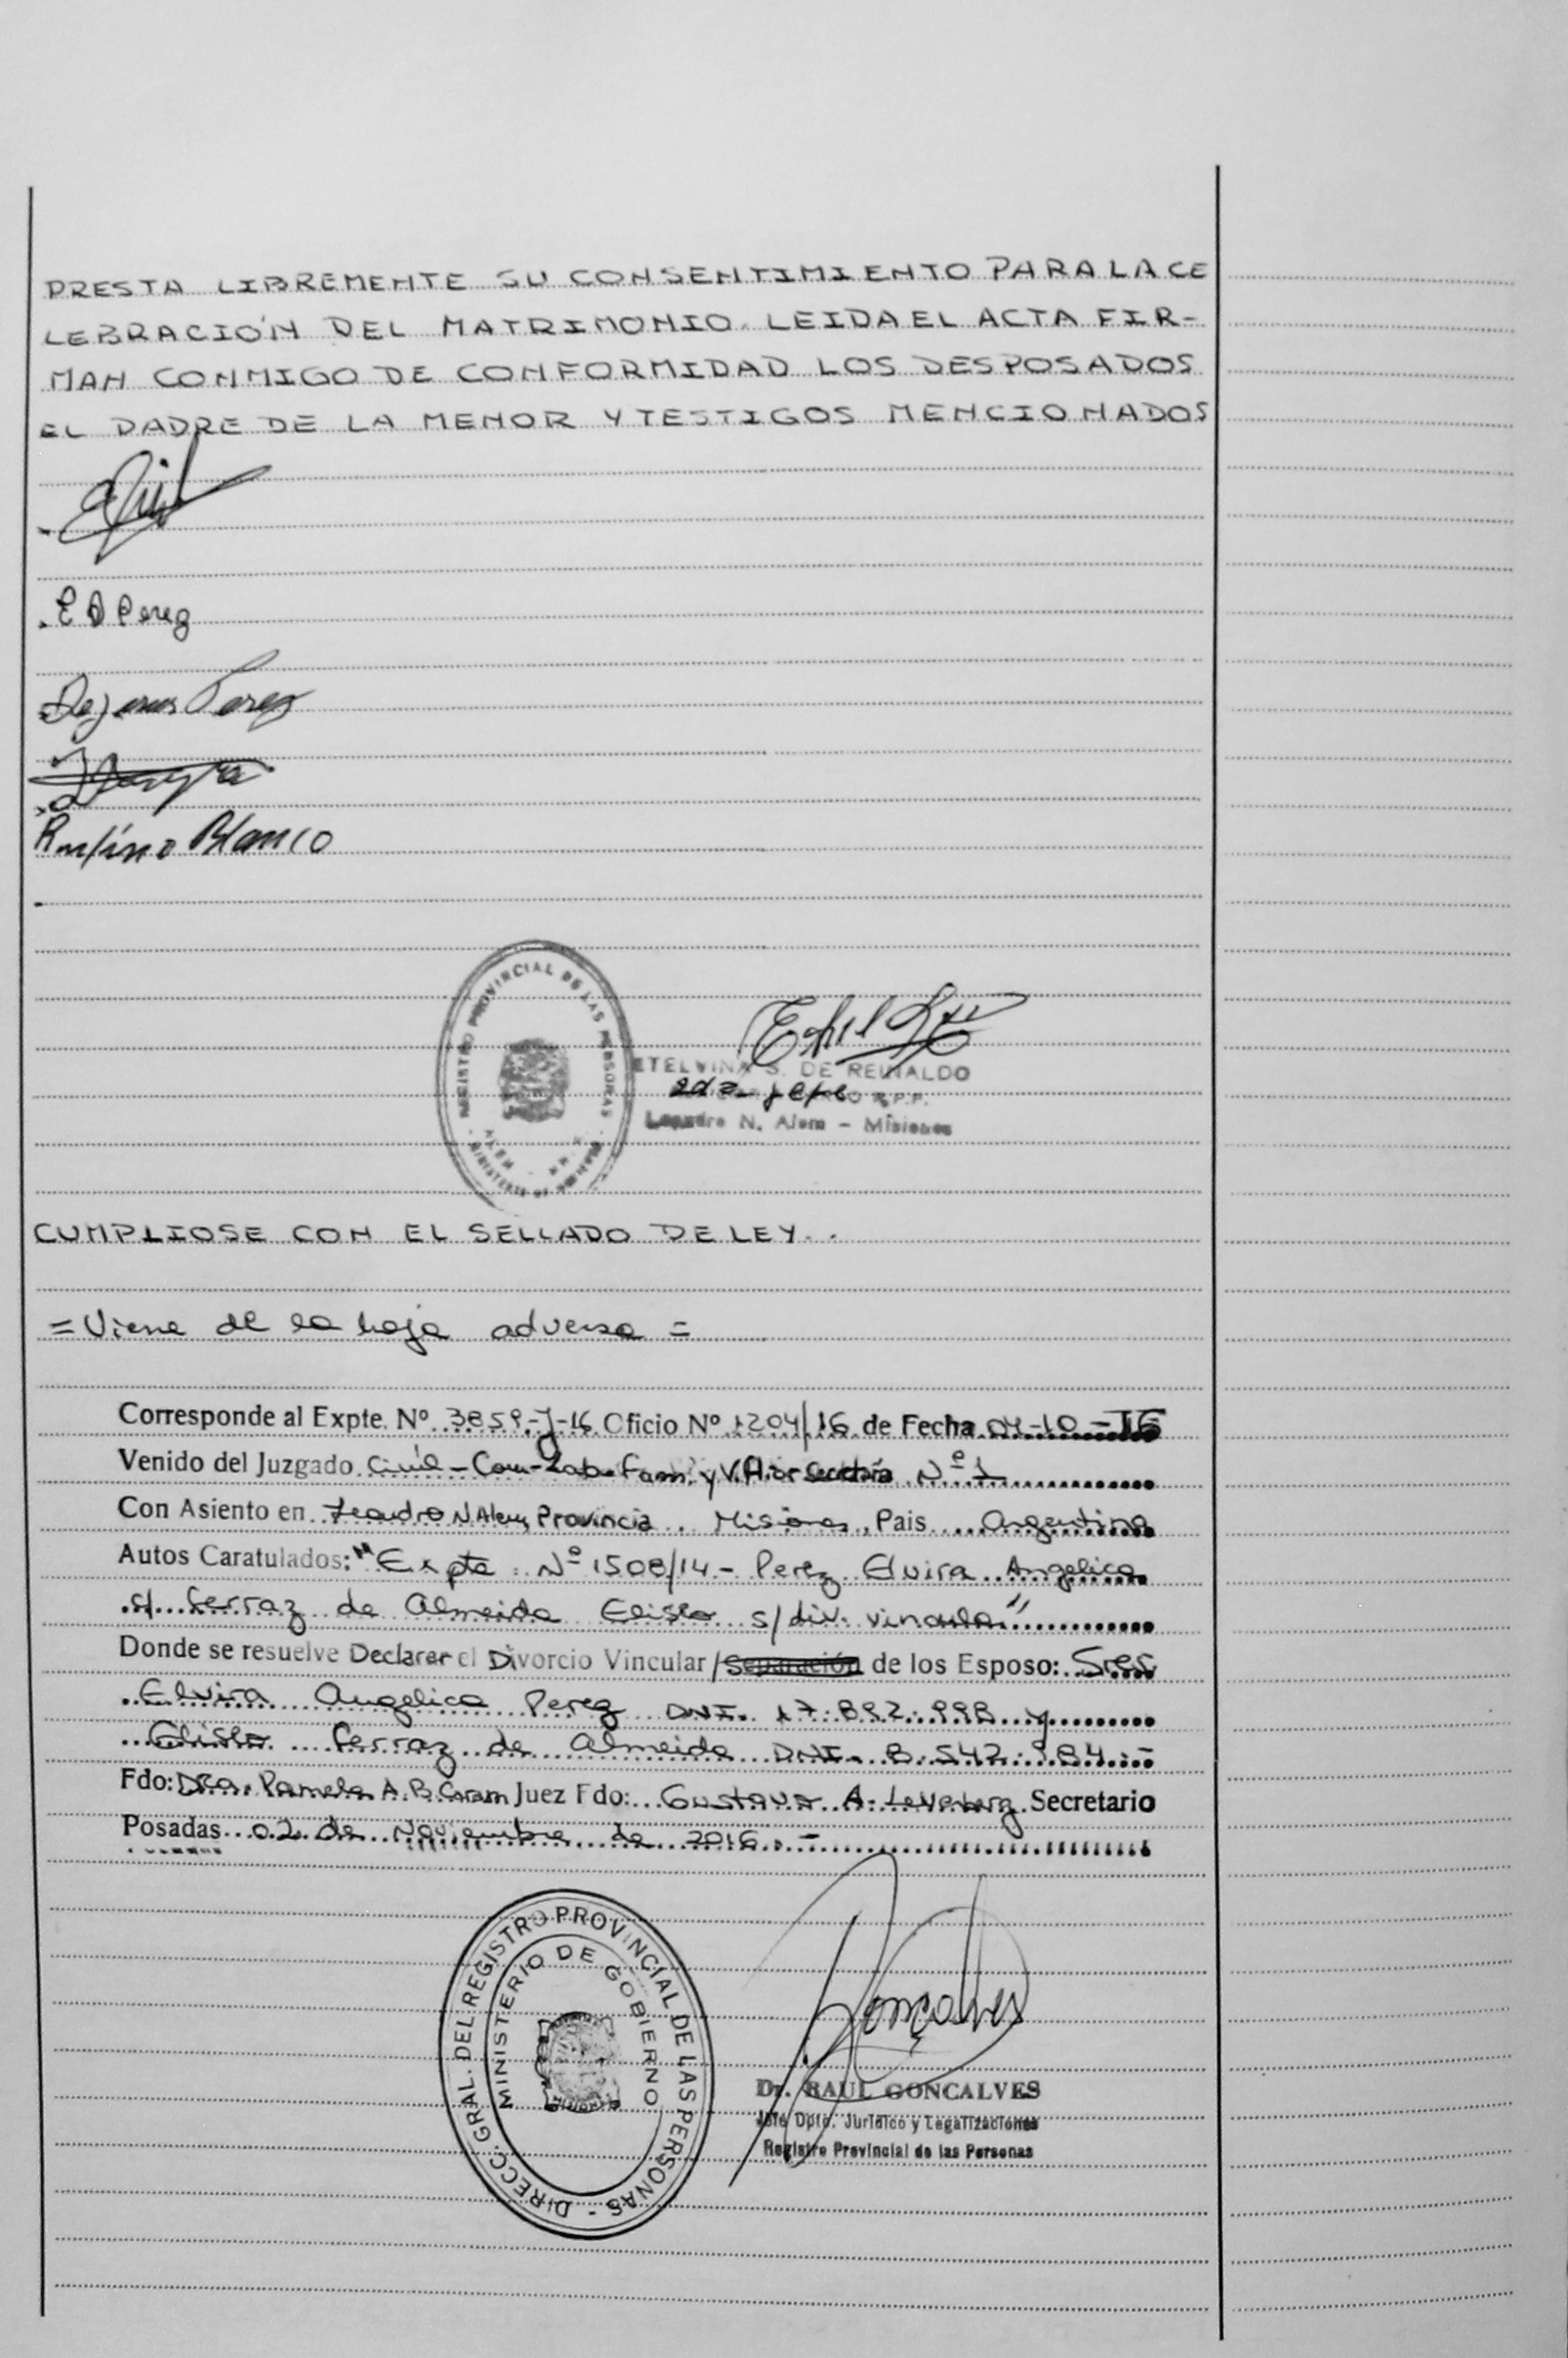 PRESTA LIBREMENTE SU CONSENTIMIENTO PARA LA CE
LEBRACIÓN DEL MATRIMONIO. LEIDA EL ACTA FIR-
MAN CONMIGO DE CONFORMIDAD LOS DESPOSADOS
EL PADRE DE LA MENOR Y TESTIGOS MENCIONADOS
E A Perez
Dejesus Perez
Rufino Blanco
REGISTRO PROVINCIAL DE LAS PERSONAS
ETELVINA S. DE REINALDO
R.P.P.
Leandro N. Alem - Misiones
CUMPLIOSE CON EL SELLADO DE LEY..
= Viene de la hoja adversa =
Corresponde al Expte. Nº 3859-J-16 Oficio Nº 1204/16 de Fecha 04-10-16
Venido del Juzgado Civil-Com-Lab. Fam. y V. Flia Secretaría Nº 1
Con Asiento en Leandro N Alem, Provincia Misiones, Pais Argentina
Autos Caratulados: "Expte. Nº 1508/14 - Perez Elvira Angelica
c/ Ferraz de Almeida Eliseo s/ div. vincular"
Donde se resuelve Declarar el Divorcio Vincular/Separación de los Esposo: Sres
Elvira Angelica Perez DNI. 17.892.998 y
Eliseo Ferraz de Almeida DNI. 8.542.984.-
Fdo: Dra. Pamela A. B. Caram Juez Fdo: Gustavo A. Secretario
Posadas 02 de Noviembre de 2016.-
DIRECC. GRAL. DEL REGISTRO PROVINCIAL DE LAS PERSONAS -
MINISTERIO DE GOBIERNO
Goncalves
Dr. RAUL GONCALVES
Jefe Dpto. Jurídico y Legalizaciones
Registro Provincial de las Personas